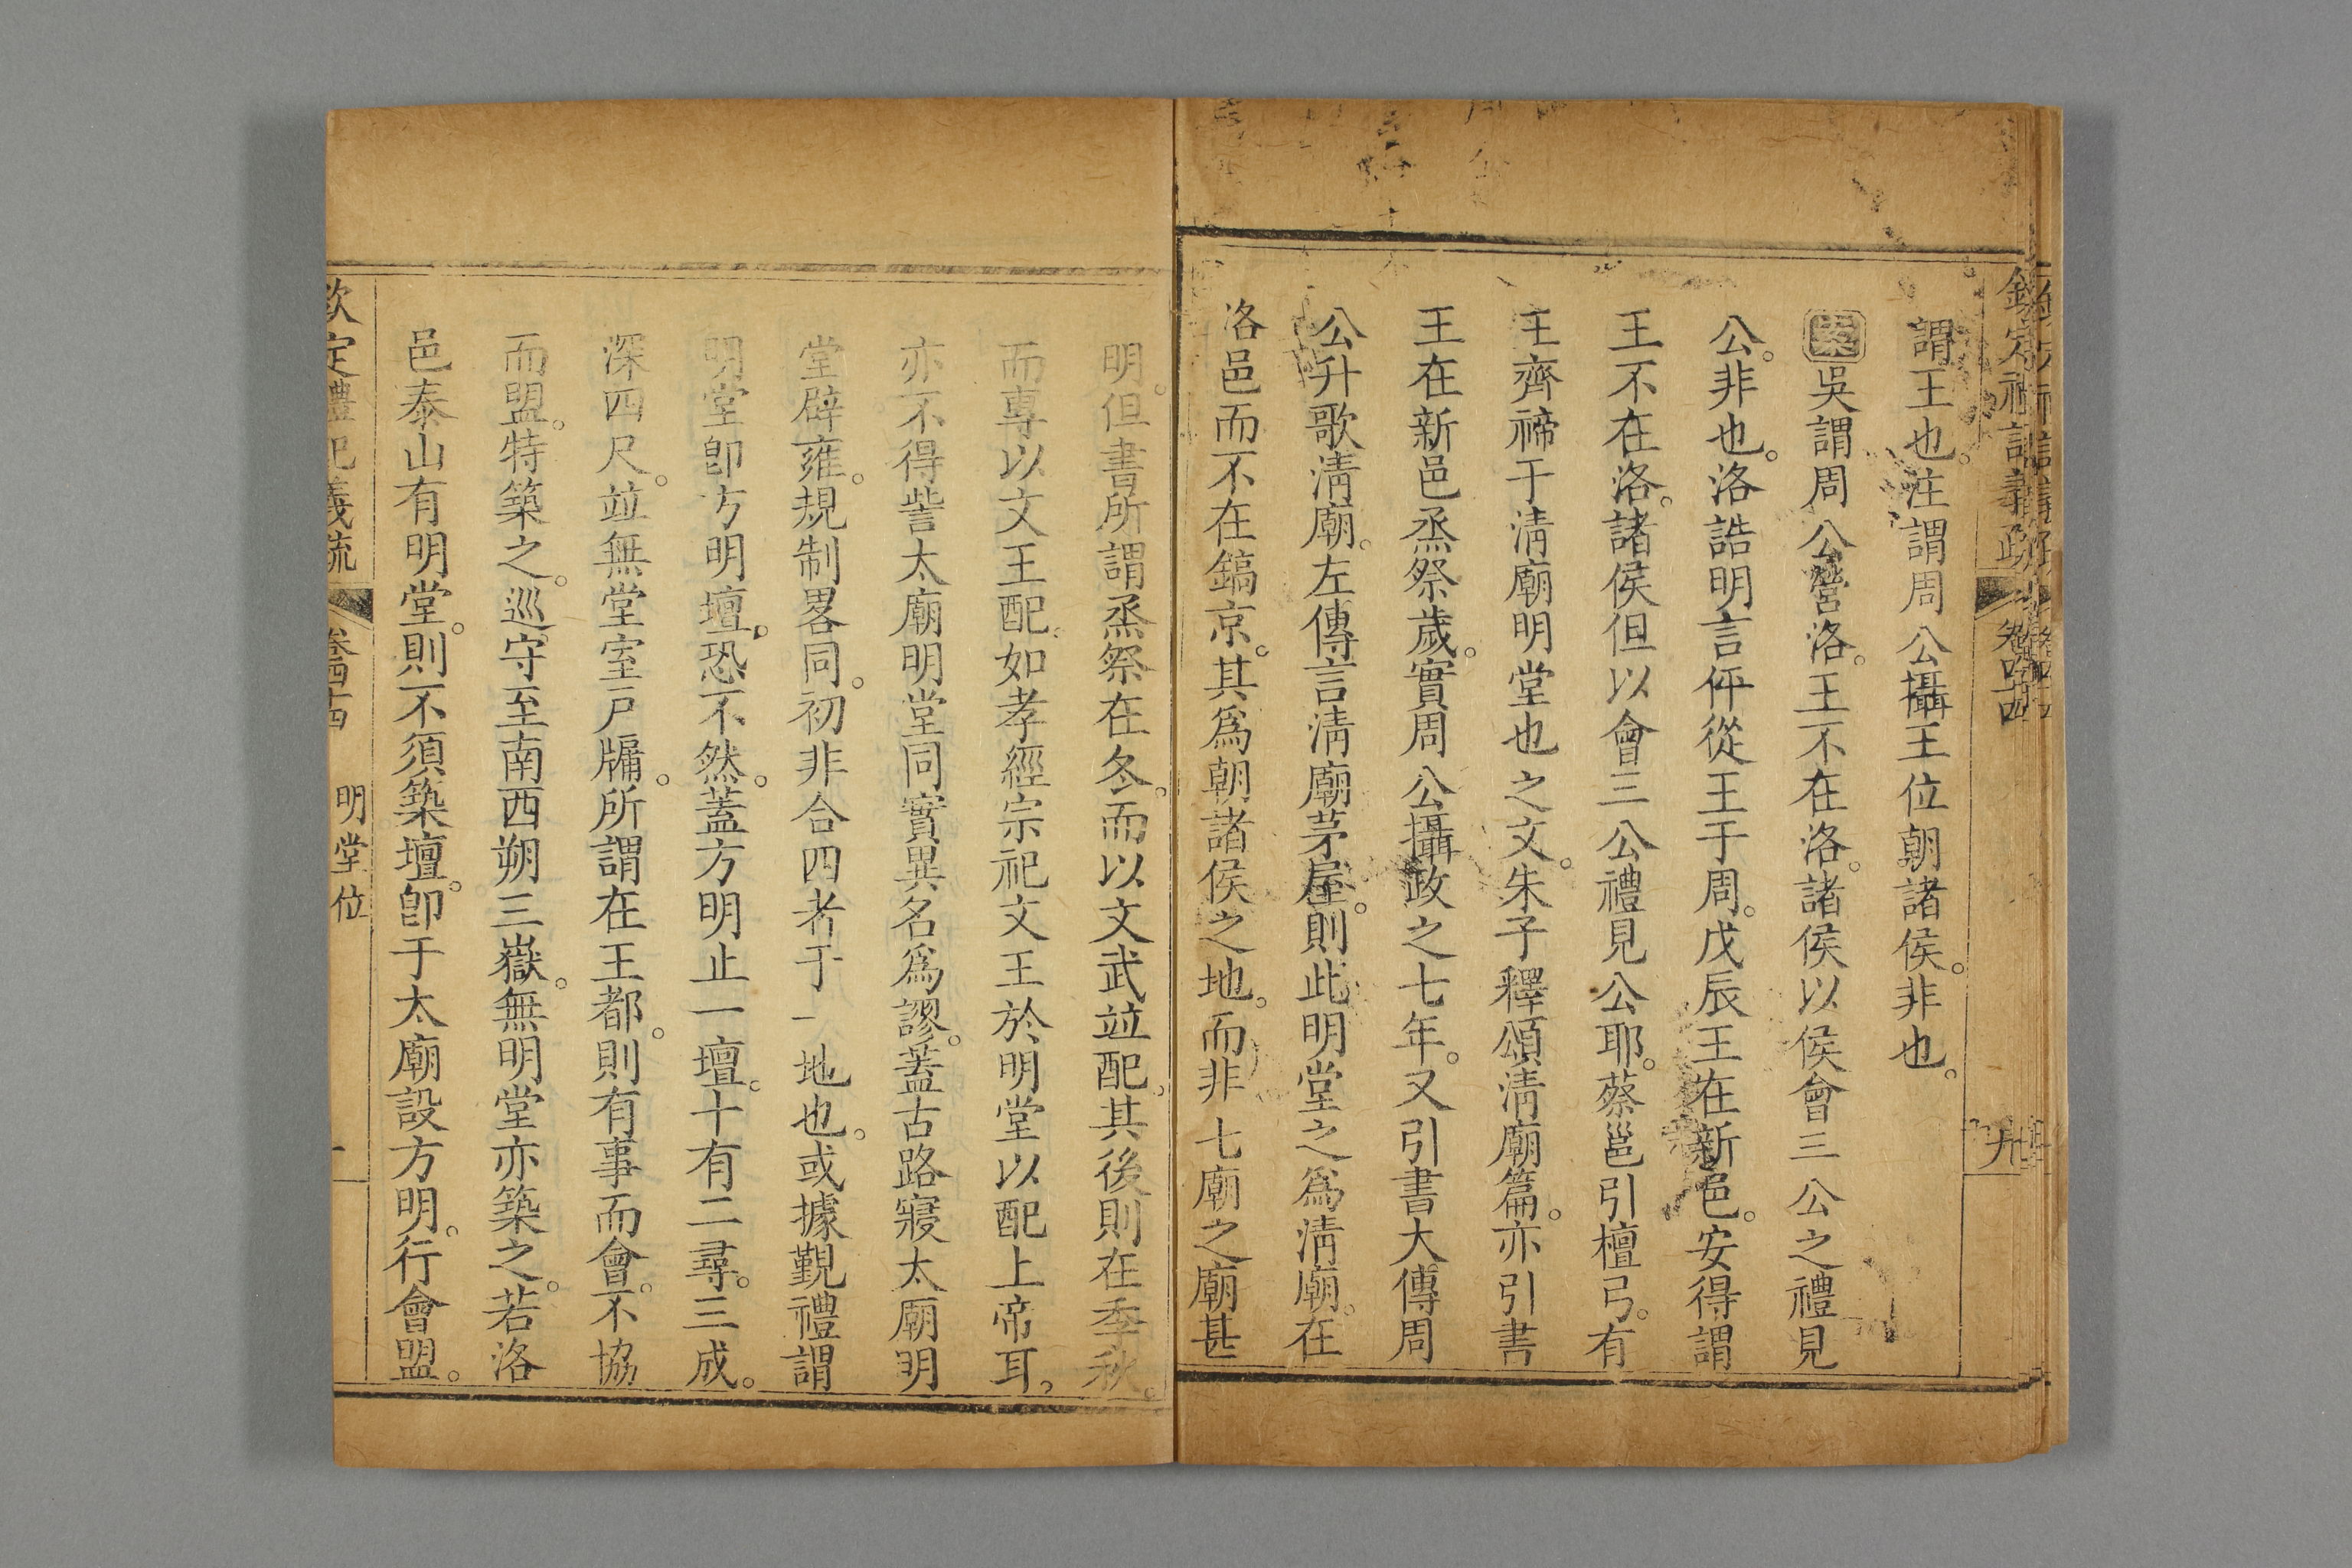 欽定禮記義疏 卷四十四 九
謂王也。注謂周公攝王位朝諸侯。非也。
案吳謂周公營洛。王不在洛。諸侯以侯會三公之禮見
公。非也。洛誥明言伻從王于周。戊辰王在新邑。安得謂
王不在洛。諸侯但以會三公禮見公耶。蔡邕引檀弓。有
王齊禘于淸廟明堂也之文。朱子釋頌淸廟篇。亦引書
王在新邑烝祭歲。實周公攝政之七年。又引書大傳周
公升歌淸廟。左傳言淸廟茅屋。則此明堂之爲淸廟。在
洛邑而不在鎬京。其爲朝諸侯之地。而非七廟之廟甚
明。但書所謂烝祭在冬。而以文武竝配。其後則在季秋。
而專以文王配。如孝經宗祀文王於明堂以配上帝耳。
亦不得訾太廟明堂同實異名爲謬。蓋古路寢太廟明
堂辟雍。規制畧同。初非合四者于一地也。或據覲禮謂
明堂卽方明壇。恐不然。蓋方明止一壇。十有二尋。三成。
深四尺。竝無堂室戸牖。所謂在王都。則有事而會。不協
而盟。特築之。巡守至南西朔三嶽。無明堂亦築之。若洛
邑泰山有明堂。則不須築壇。卽于太廟設方明。行會盟。
欽定禮記義疏 卷四十四 明堂位